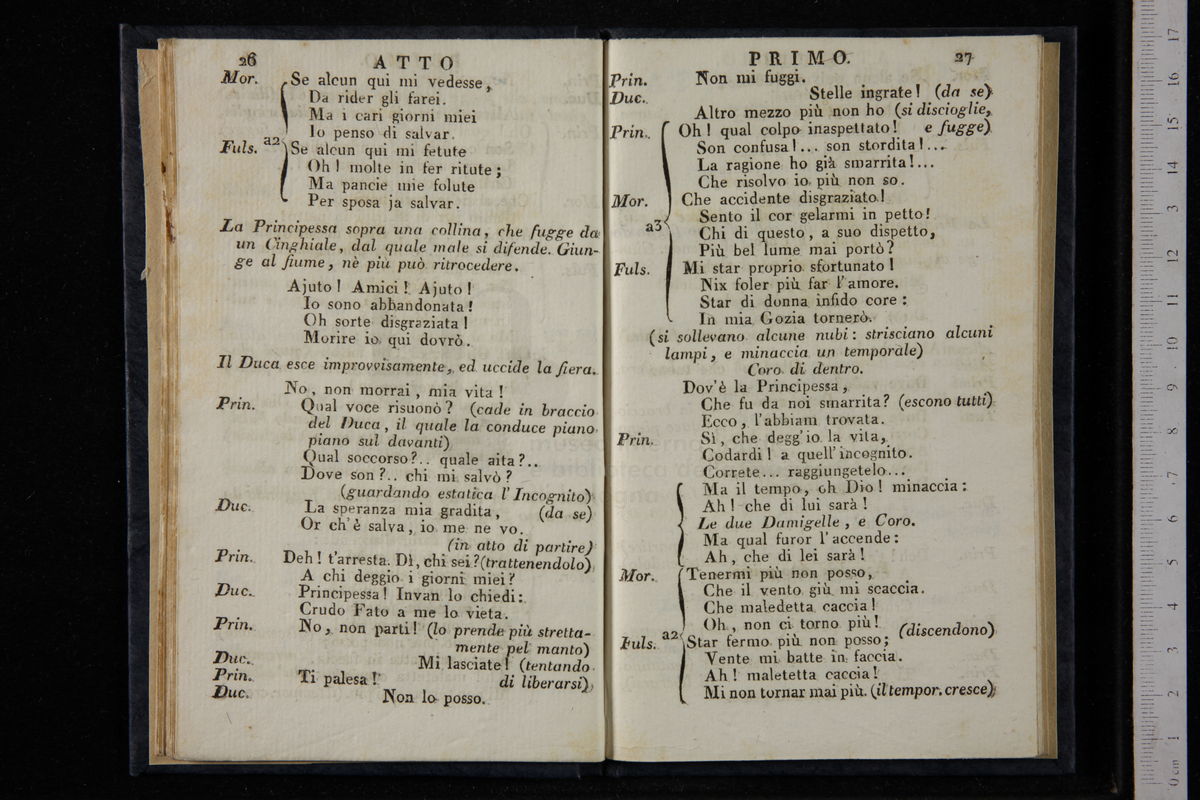 26 ATTO
Mor. Se alcun qui mi vedesse,
Da rider gli farei.
Ma i cari giorni miei
Io penso di salvar.
a2
Fuls. Se alcun qui mi fetute
Oh! molte in fer ritute;
Ma pancie mie folute
Per sposa ja salvar.
La Principessa sopra una collina, che fugge da
un Cinghiale, dal quale male si difende. Giun-
ge al fiume, nè più può ritrocedere.
Ajuto! Amici! Ajuto!
Io sono abbandonata!
Oh sorte disgraziata!
Morire io qui dovrò.
Il Duca esce improvvisamente, ed uccide la fiera.
No, non morrai, mia vita!
Prin. Qual voce risuonò? (cade in braccio
del Duca, il quale la conduce piano
piano sul davanti)
Qual soccorso?.. quale aita?..
Dove son?.. chi mi salvò?
(guardando estatica l'Incognito)
Duc. La speranza mia gradita, (da se)
Or ch'è salva, io me ne vo.
(in atto di partire)
Prin. Deh! t'arresta. Dì, chi sei? (trattenendolo)
A chi deggio i giorni miei?
Duc. Principessa! Invan lo chiedi:
Crudo Fato a me lo vieta.
Prin. No, non parti! (lo prende più stretta-
mente pel manto)
Duc. Mi lasciate! (tentando
Prin. Ti palesa! di liberarsi)
Duc. Non lo posso.
PRIMO. 27
Prin. Non mi fuggi.
Duc. Stelle ingrate! (da se)
Altro mezzo più non ho (si discioglie,
Prin. Oh! qual colpo inaspettato! e fugge)
Son confusa!... son stordita!...
La ragione ho già smarrita!...
Che risolvo io più non so.
Mor. Che accidente disgraziato!
Sento il cor gelarmi in petto!
a3 Chi di questo, a suo dispetto,
Più bel lume mai portò?
Fuls. Mi star proprio sfortunato!
Nix foler più far l'amore.
Star di donna infido core:
In mia Gozia tornerò.
(si sollevano alcune nubi: strisciano alcuni
lampi, e minaccia un temporale)
Coro di dentro.
Dov'è la Principessa,
Che fu da noi smarrita? (escono tutti)
Ecco, l'abbiam trovata.
Prin. Sì, che degg'io la vita,
Codardi! a quell'incognito.
Correte... raggiungetelo...
Ma il tempo, oh Dio! minaccia:
Ah! che di lui sarà!
Le due Damigelle, e Coro.
Ma qual furor l'accende:
Ah, che di lei sarà!
Mor. Tenermi più non posso,
Che il vento giù mi scaccia.
Che maledetta caccia!
Oh, non ci torno più! (discendono)
a2
Fuls. Star fermo più non posso;
Vente mi batte in faccia.
Ah! maletetta caccia!
Mi non tornar mai più. (il tempor. cresce)